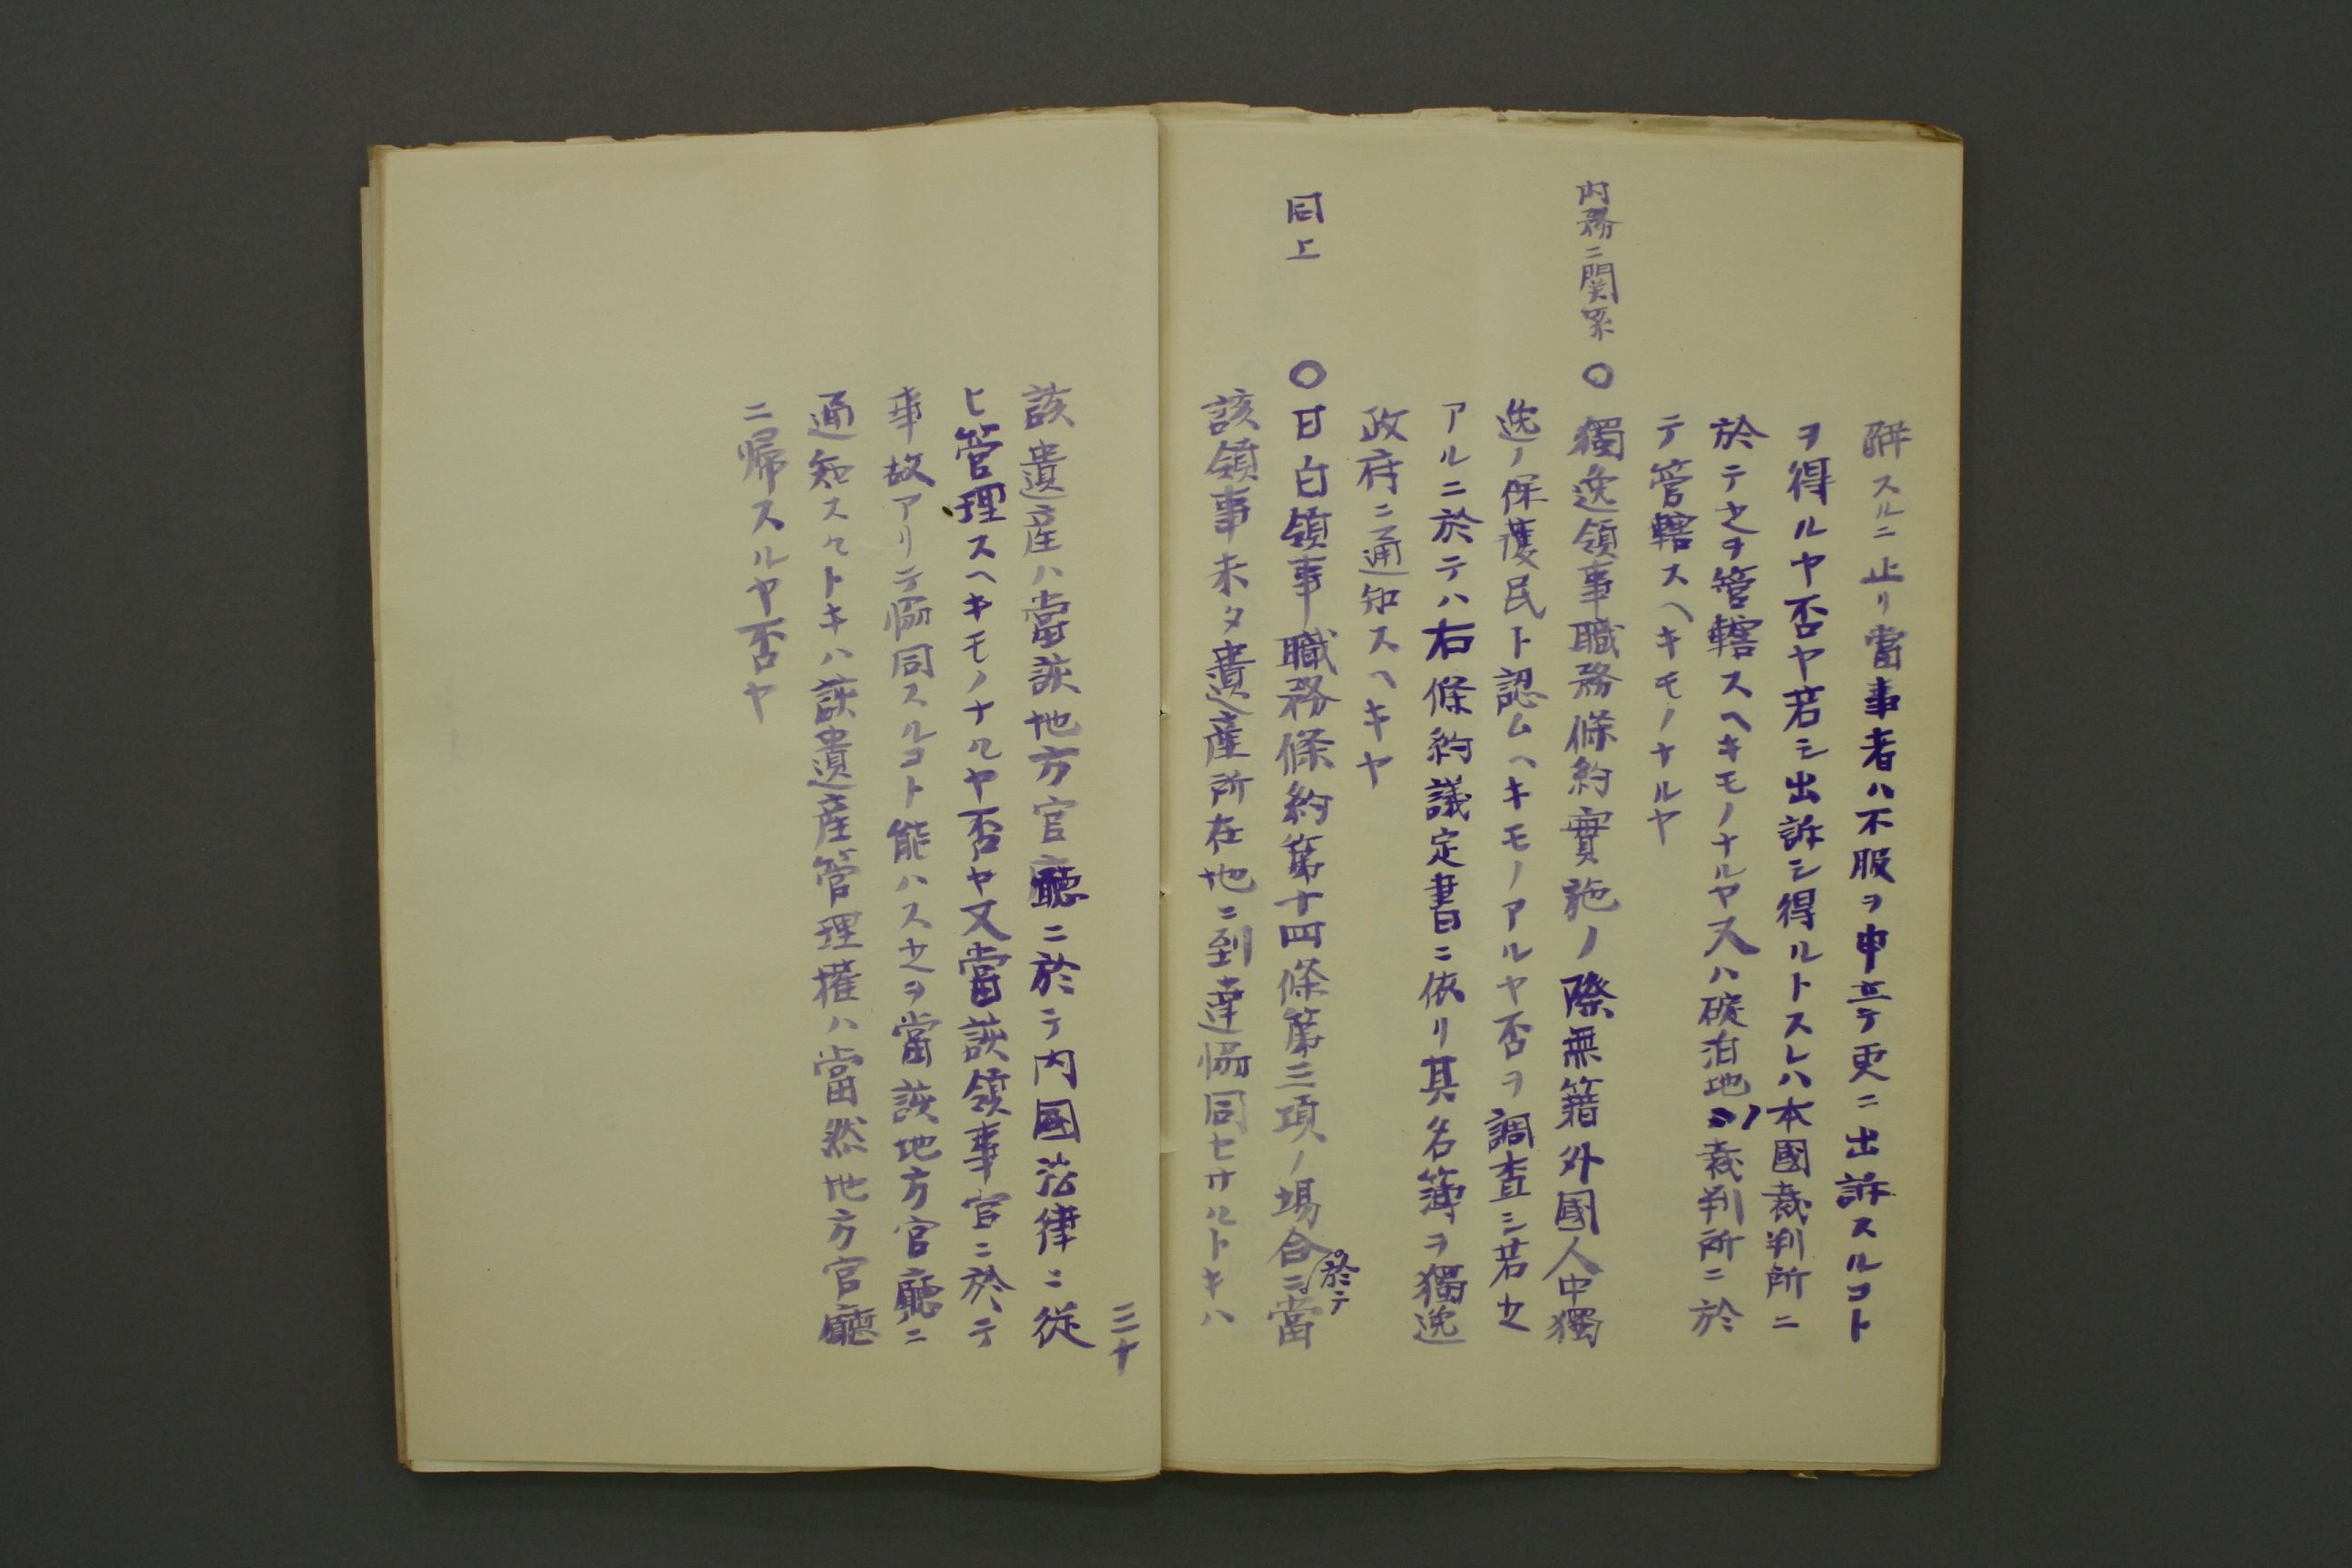 辨スルニ止リ當事者ハ不服ヲ申立テ更ニ出訴スルコト
ヲ得ルヤ否ヤ若シ出訴シ得ルトスレハ本國裁判所ニ
於テ之ヲ管轄スヘキモノナルヤ又ハ碇泊地ノ裁判所ニ於
テ管轄スヘキモノナルヤ
内務ニ関系
〇獨逸領事職務條約實施ノ際無籍外國人中獨
逸ノ保護民ト認ムヘキモノアルヤ否ヲ調査シ若之
アルニ於テハ右條約議定書ニ依リ其名簿ヲ獨逸
政府ニ通知スヘキヤ
同上
〇日白領事職務條約第十四條第三項ノ場合ニ於テ當
該領事未タ遺産所在地ニ到達協同セサルトキハ
三十
該遺産ハ當該地方官廳ニ於テ内國法律ニ從
ヒ管理スヘキモノナルヤ否ヤ又當該領事官ニ於テ
事故アリテ協同スルコト能ハス之ヲ當該地方官廳ニ
通知スルトキハ該遺産管理權ハ當然地方官廳
ニ帰スルヤ否ヤ